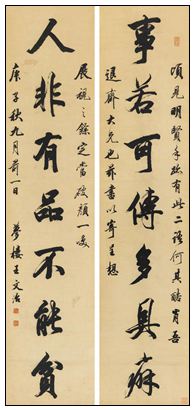 事若可傳多具癖
頃見明賢手跡有此二語何其酷肖吾
退齋大兄也輒書以寄呈想
人非有品不能貧
展視之餘定當破顏一笑
庚子秋九月前一日 夢樓王文治